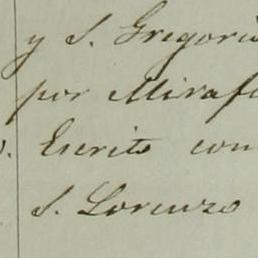 y S. Gregorio
por Miraf
Escrito con
S. Lorenzo